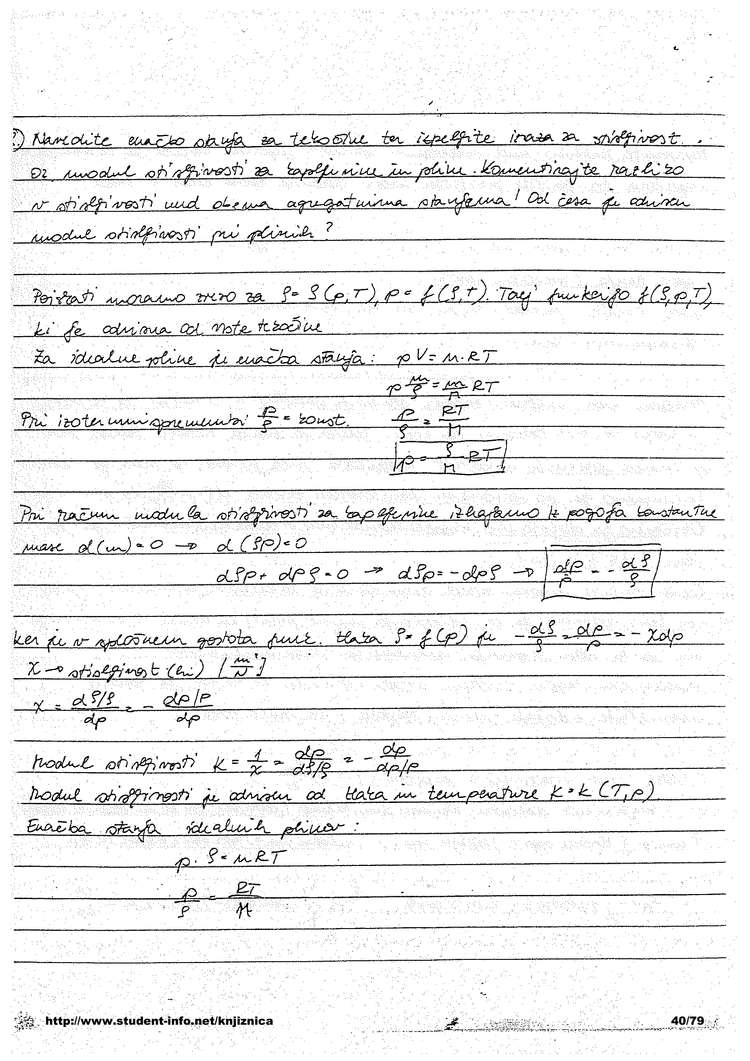 ?) Navedite enačbo stanja za tekočine ter izpeljite izraza za stisljivost
oz. modul stisljivosti za kapljevine in pline. Komentirajte razliko
v stisljivosti med obema agregatnima stanjema! Od česa je odvisen
modul stisljivosti pri plinih?
Poiskati moramo zvezo za ρ = ρ(p,T), p = f(ρ,t). Torej funkcijo f(ρ,p,T),
ki je odvisna od vrste tekočine
Za idealne pline je enačba stanja: pV = n·RT
p m/ρ = m/M RT
Pri izotermni spremembi p/ρ = konst. p/ρ = RT/M
p = ρ/M · RT
Pri računu modula stisljivosti za kapljevine izhajamo iz pogoja konstantne
mase d(m) = 0 → d(ρp) = 0
dρp + dpρ = 0 → dρp = -dpρ → dp/p = - dρ/ρ
Ker je v splošnem gostota funk. tlaka ρ = f(p) je -dρ/ρ = dp/p = -χdp
χ → stisljivost (hi) [m²/N]
χ = dρ/ρ/dp = - dp/p/dp
Modul stisljivosti K = 1/χ = dp/dρ/ρ = - dp/dp/p
Modul stisljivosti je odvisen od tlaka in temperature K = k(T,p)
Enačba stanja idealnih plinov:
p · ρ = nRT
p/ρ = RT/M
http://www.student-info.net/knjiznica 40/79